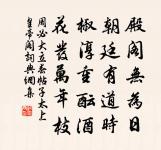 殿閣無為日
朝廷有道時
椒淳重醞酒
花發萬年枝
周必大立春帖子太上
皇帝閣詞與網集